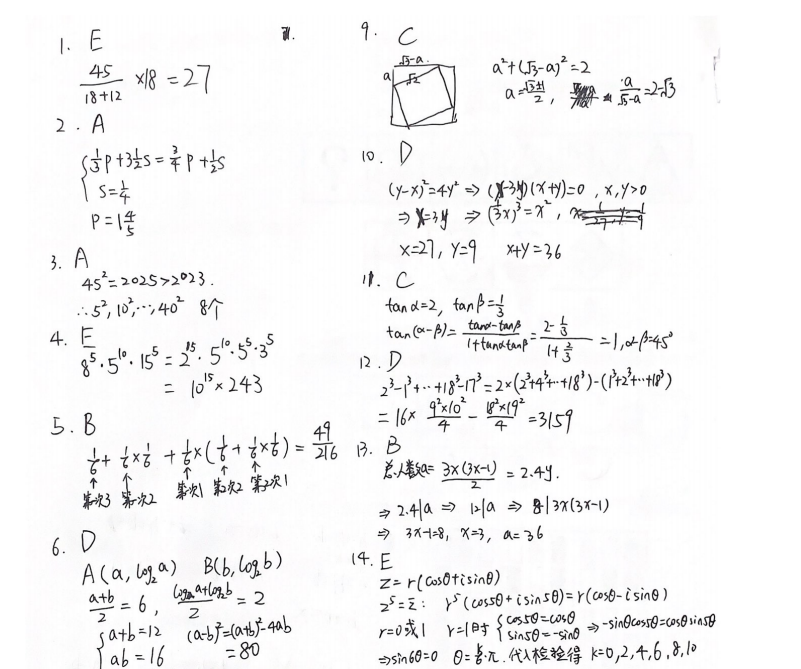 1. E
45/(18+12) ×18 = 27
2. A
{ 1/3 P + 3 1/2 S = 3/4 P + 1/2 S
S = 1/4
P = 1 4/5
3. A
45² = 2025 > 2023.
∴ 5², 10², …, 40² 8个
4. E
8⁵·5¹⁰·15⁵ = 2¹⁵·5¹⁰·5⁵·3⁵
= 10¹⁵ × 243
5. B
1/6 + 1/6 × 1/6 + 1/6 × (1/6 + 1/6 × 1/6) = 49/216
第一次3 第一次2 第一次1 第2次2 第2次1
6. D
A(a, log₂a) B(b, log₂b)
(a+b)/2 = 6, (log₂a+log₂b)/2 = 2
{ a+b=12 (a-b)² = (a+b)² - 4ab
ab = 16 = 80
9. C
√3-a
a √2
a² + (√3-a)² = 2
a = (√3±1)/2, a/(√3-a) = 2-√3
10. D
(y-x)² = 4y² ⇒ (x-3y)(x+y) = 0, x,y>0
⇒ x=3y ⇒ (1/3 x)³ = x²,
x=27, y=9 x+y=36
11. C
tanα=2, tanβ=1/3
tan(α-β) = (tanα-tanβ)/(1+tanαtanβ) = (2-1/3)/(1+2/3) = 1, α-β=45°
12. D
2³-1³+…+18³-17³ = 2×(2³+4³+…+18³)-(1³+2³+…+18³)
= 16× (9²×10²)/4 - (18²×19²)/4 = 3159
13. B
总人数a = 3x(3x-1)/2 = 2.4y.
⇒ 2.4|a ⇒ 12|a ⇒ 8|3x(3x-1)
⇒ 3x-1=8, x=3, a=36
14. E
z = r(cosθ+isinθ)
z⁵=z̄: r⁵(cos5θ+isin5θ) = r(cosθ-isinθ)
r=0或1 r=1时 { cos5θ=cosθ sin5θ=-sinθ ⇒ -sinθcos5θ=cosθsin5θ
⇒ sin6θ=0 θ=k/6 π. 代入检验得 k=0,2,4,6,8,10